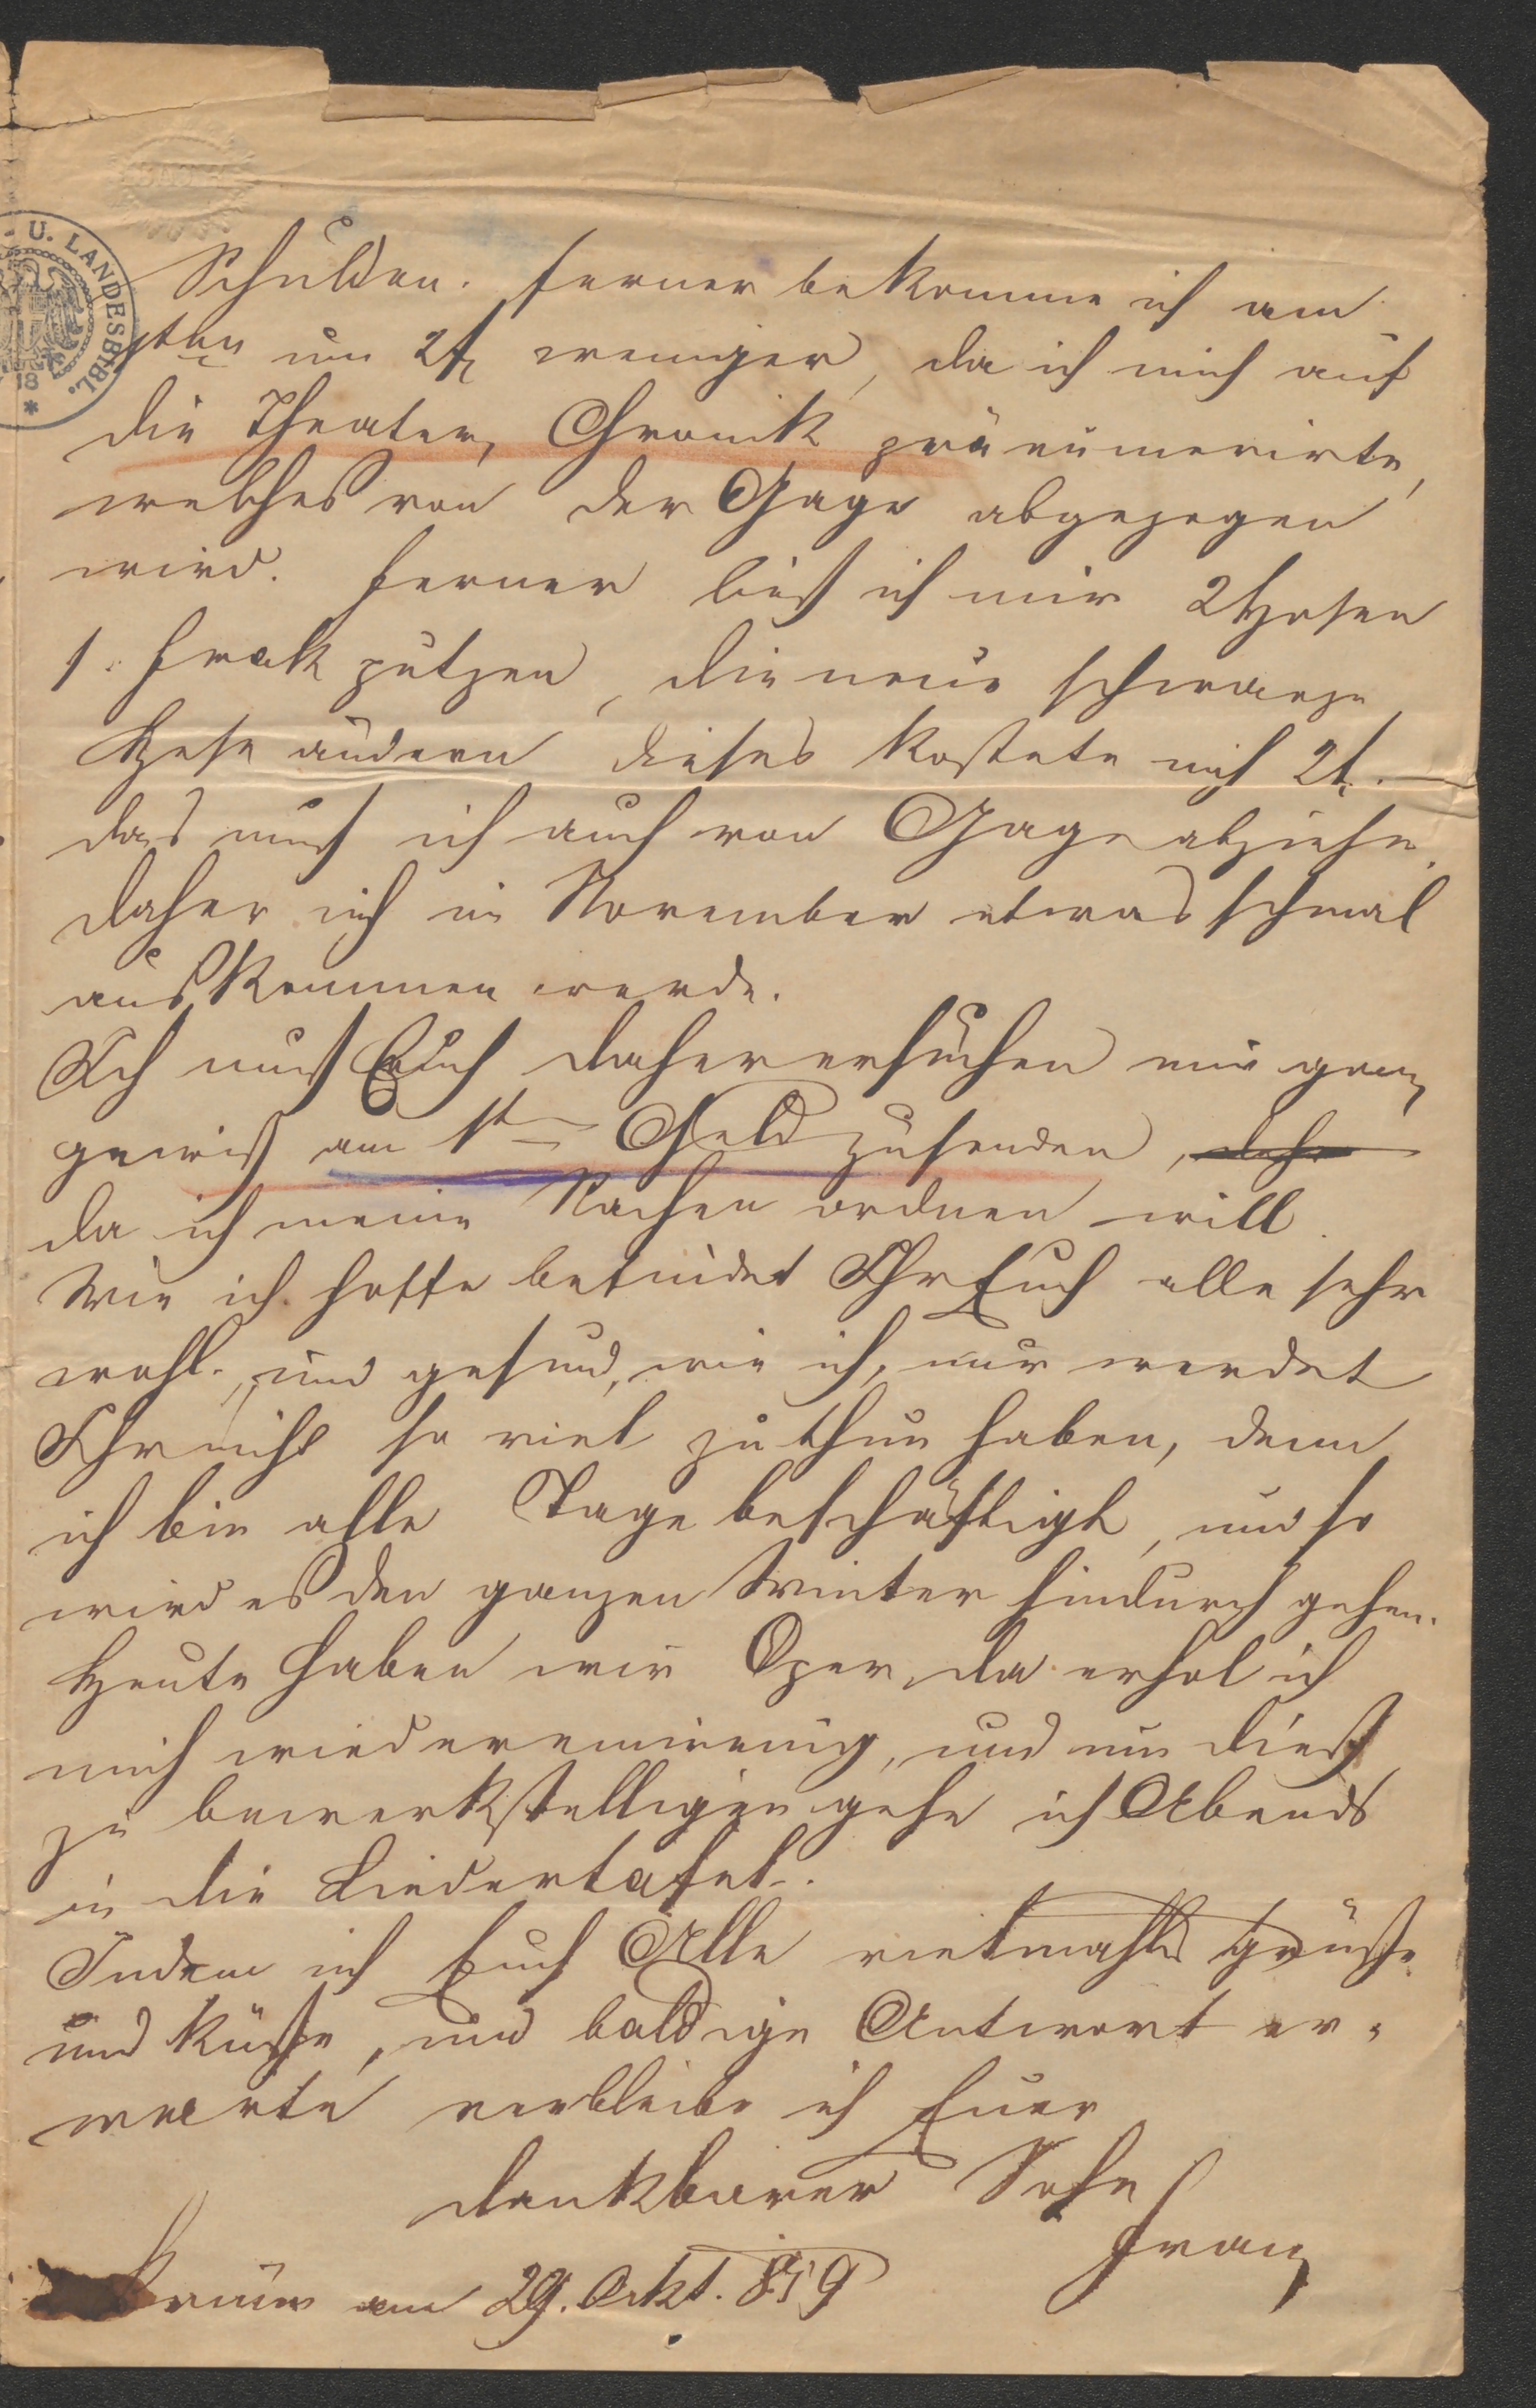 U. LANDESBIBL.
18
Schulden. Ferner bekomme ich am
1ten um 2f weniger, da ich mich auf
die Theater, Chronik pränumerirte,
welches von der Gage abgezogen
wird. Ferner ließ ich mir 2 Hosen
1. Frak putzen, die neue schwarze
Hose ändern dieses kostete mich 2f.
das muß ich auch von Gage abziehe,
daher ich im November etwas schmal
auskommen werde.
Ich muß Euch daher ersuchen mir ganz
gewiß am 1ten Geld zusenden,
da ich meine Sachen ordnen will.
Wie ich hoffe befindet Ihr Euch alle sehr
wohl, und gesund, wie ich, nur werdet
Ihr nicht so viel zu thun haben, denn
ich bin alle Tage beschäftigt, und so
wird es den ganzen Winter hindurch gehen.
Heute haben wir Oper, da erhol ich
mich wieder ein wenig, und um dieß
zu bewerkstelligen gehe ich Abends
in die Liedertafel.
Indem ich Euch Alle vielmahls grüße
und küsse, und baldige Antwort er-
warte verbleibe ich Euer
dankbarer Sohn
Franz
Brünn am 29. Okt. 859